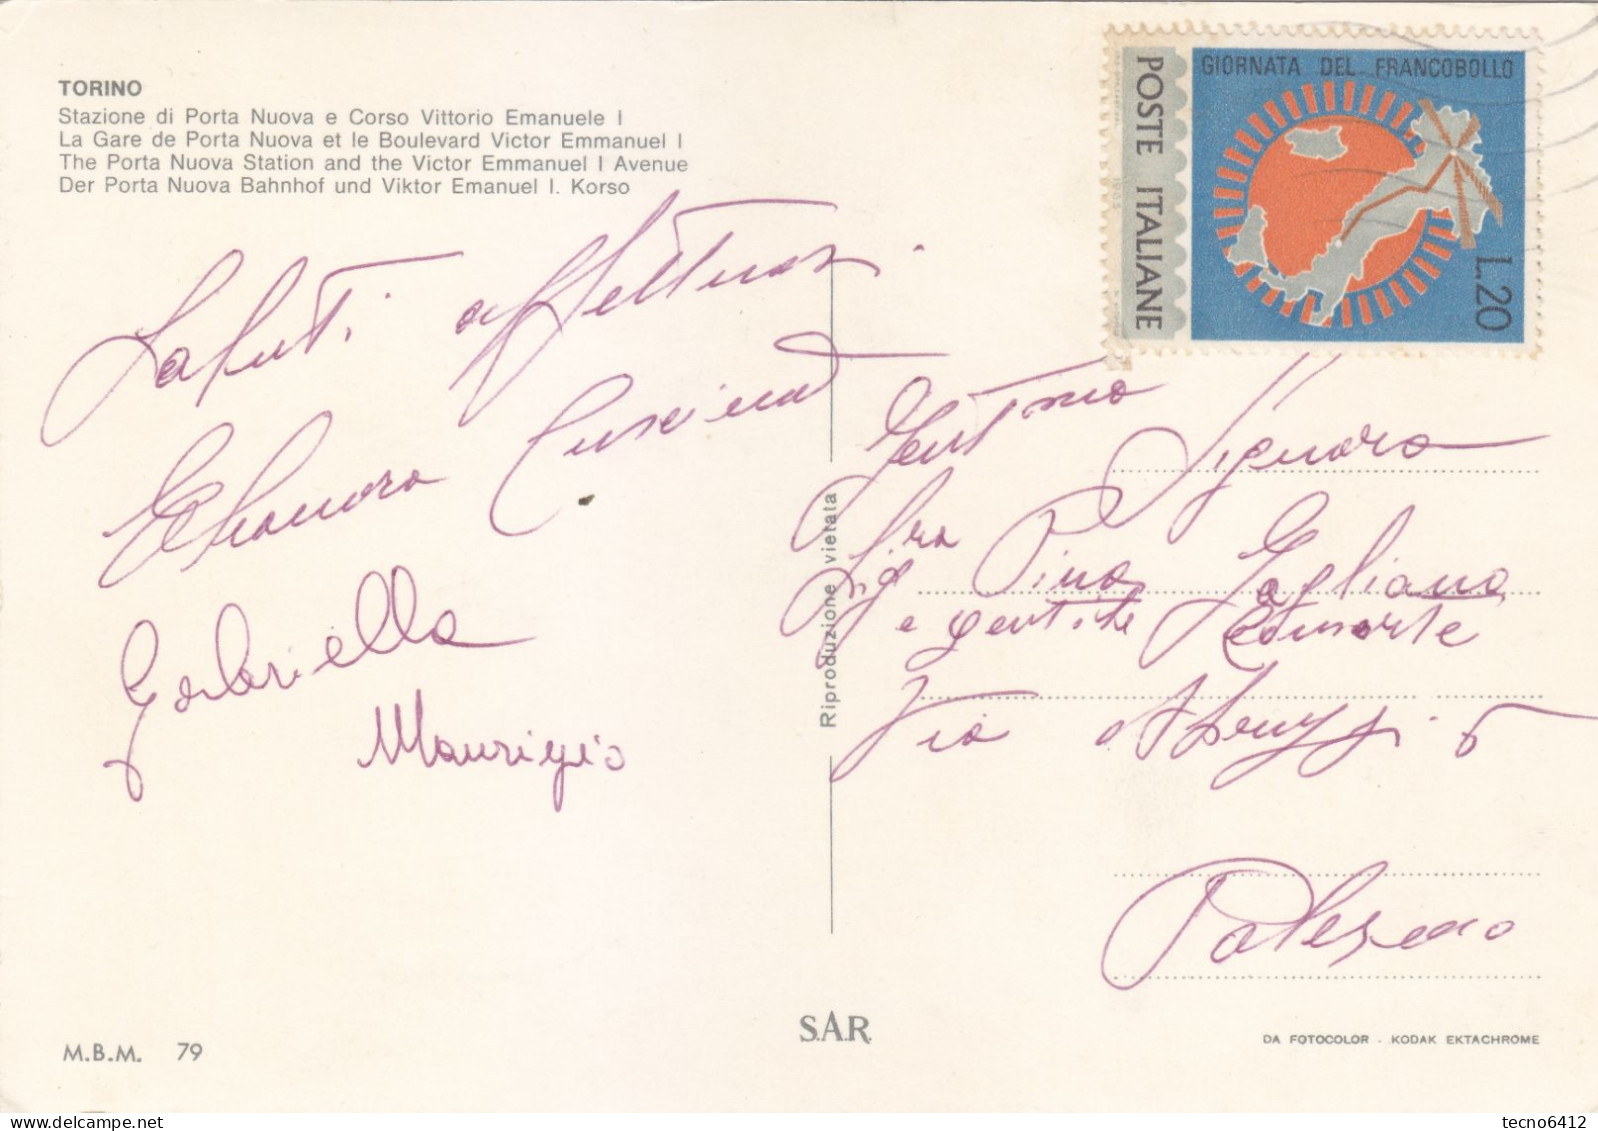 TORINO
Stazione di Porta Nuova e Corso Vittorio Emanuele I
La Gare de Porta Nuova et le Boulevard Victor Emmanuel I
The Porta Nuova Station and the Victor Emmanuel I Avenue
Der Porta Nuova Bahnhof und Viktor Emanuel I. Korso
POSTE ITALIANE
GIORNATA DEL FRANCOBOLLO
L.20
Saluti affettuosi
Eleonora
Gabriella
Maurizio
Riproduzione vietata
Signora
Sig.ra Pina Gagliano
e gentile Consorte
Via Abruzzi 6
Palermo
M.B.M. 79
S.A.R.
DA FOTOCOLOR - KODAK EKTACHROME
tecno6412